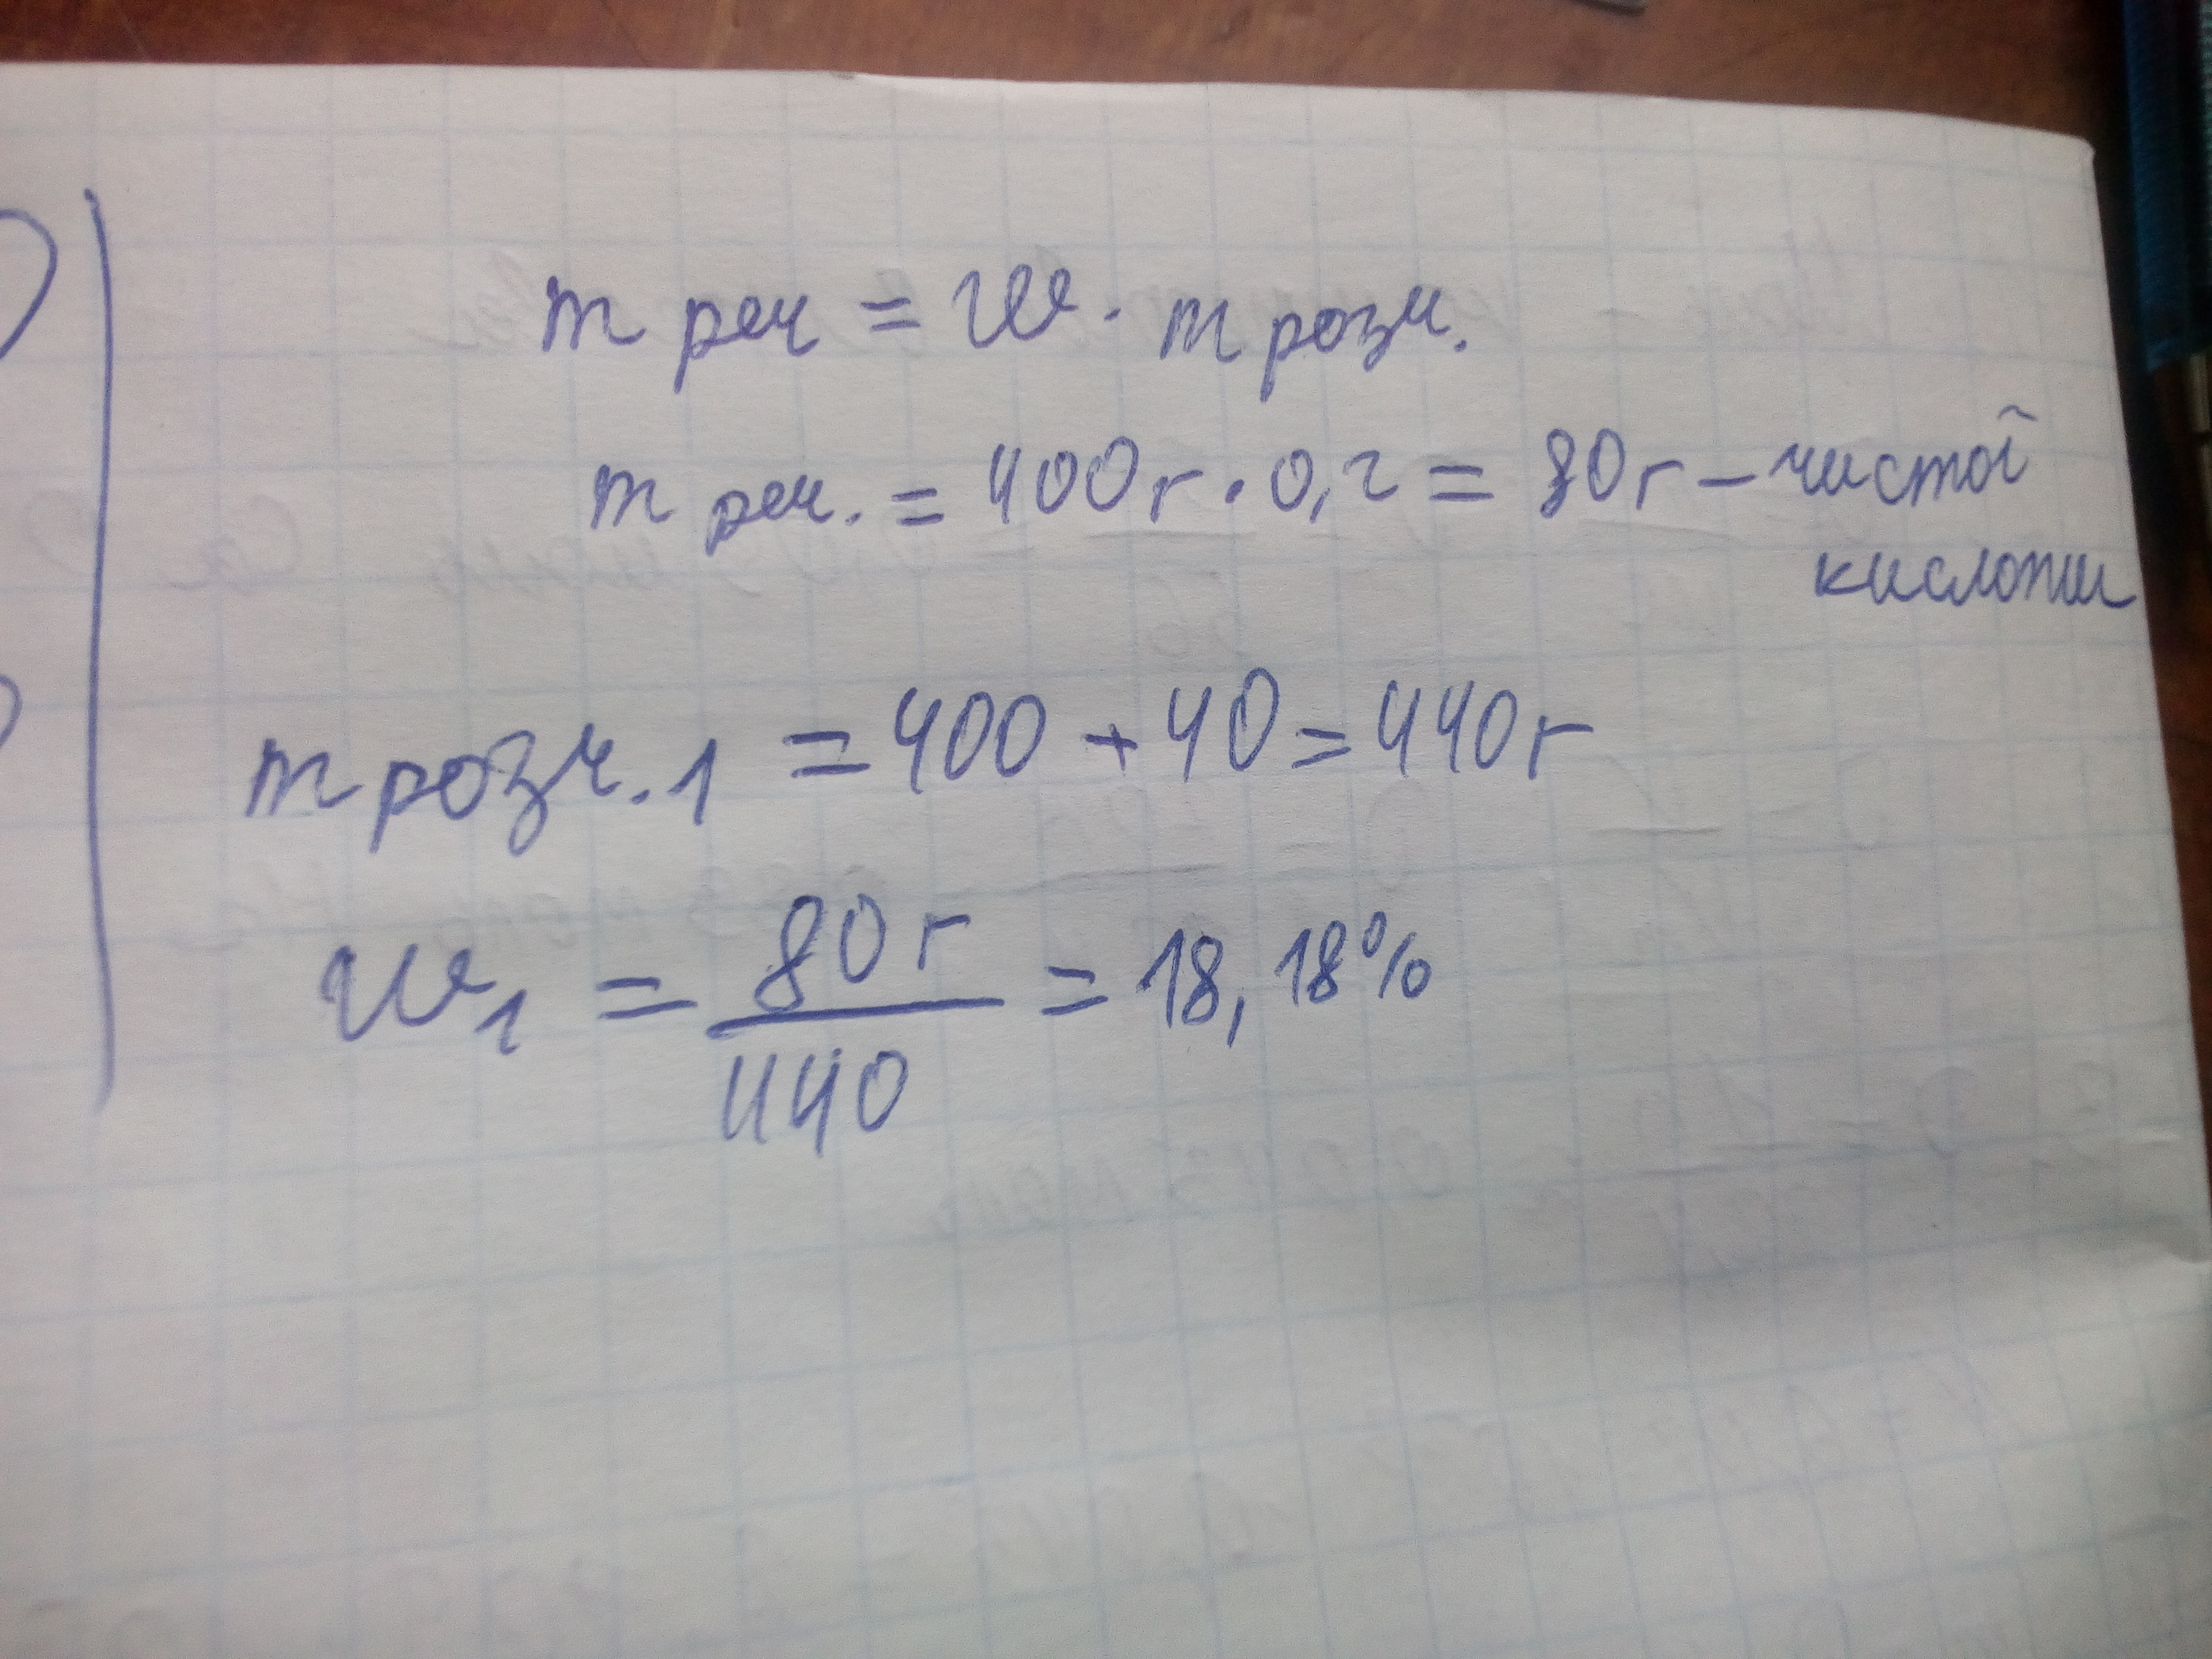 m реч = w · m розч.
m реч. = 400 г · 0,2 = 80 г – чистої
кислоти
m розч. 1 = 400 + 40 = 440 г
w₁ = 80 г / 440 = 18,18%